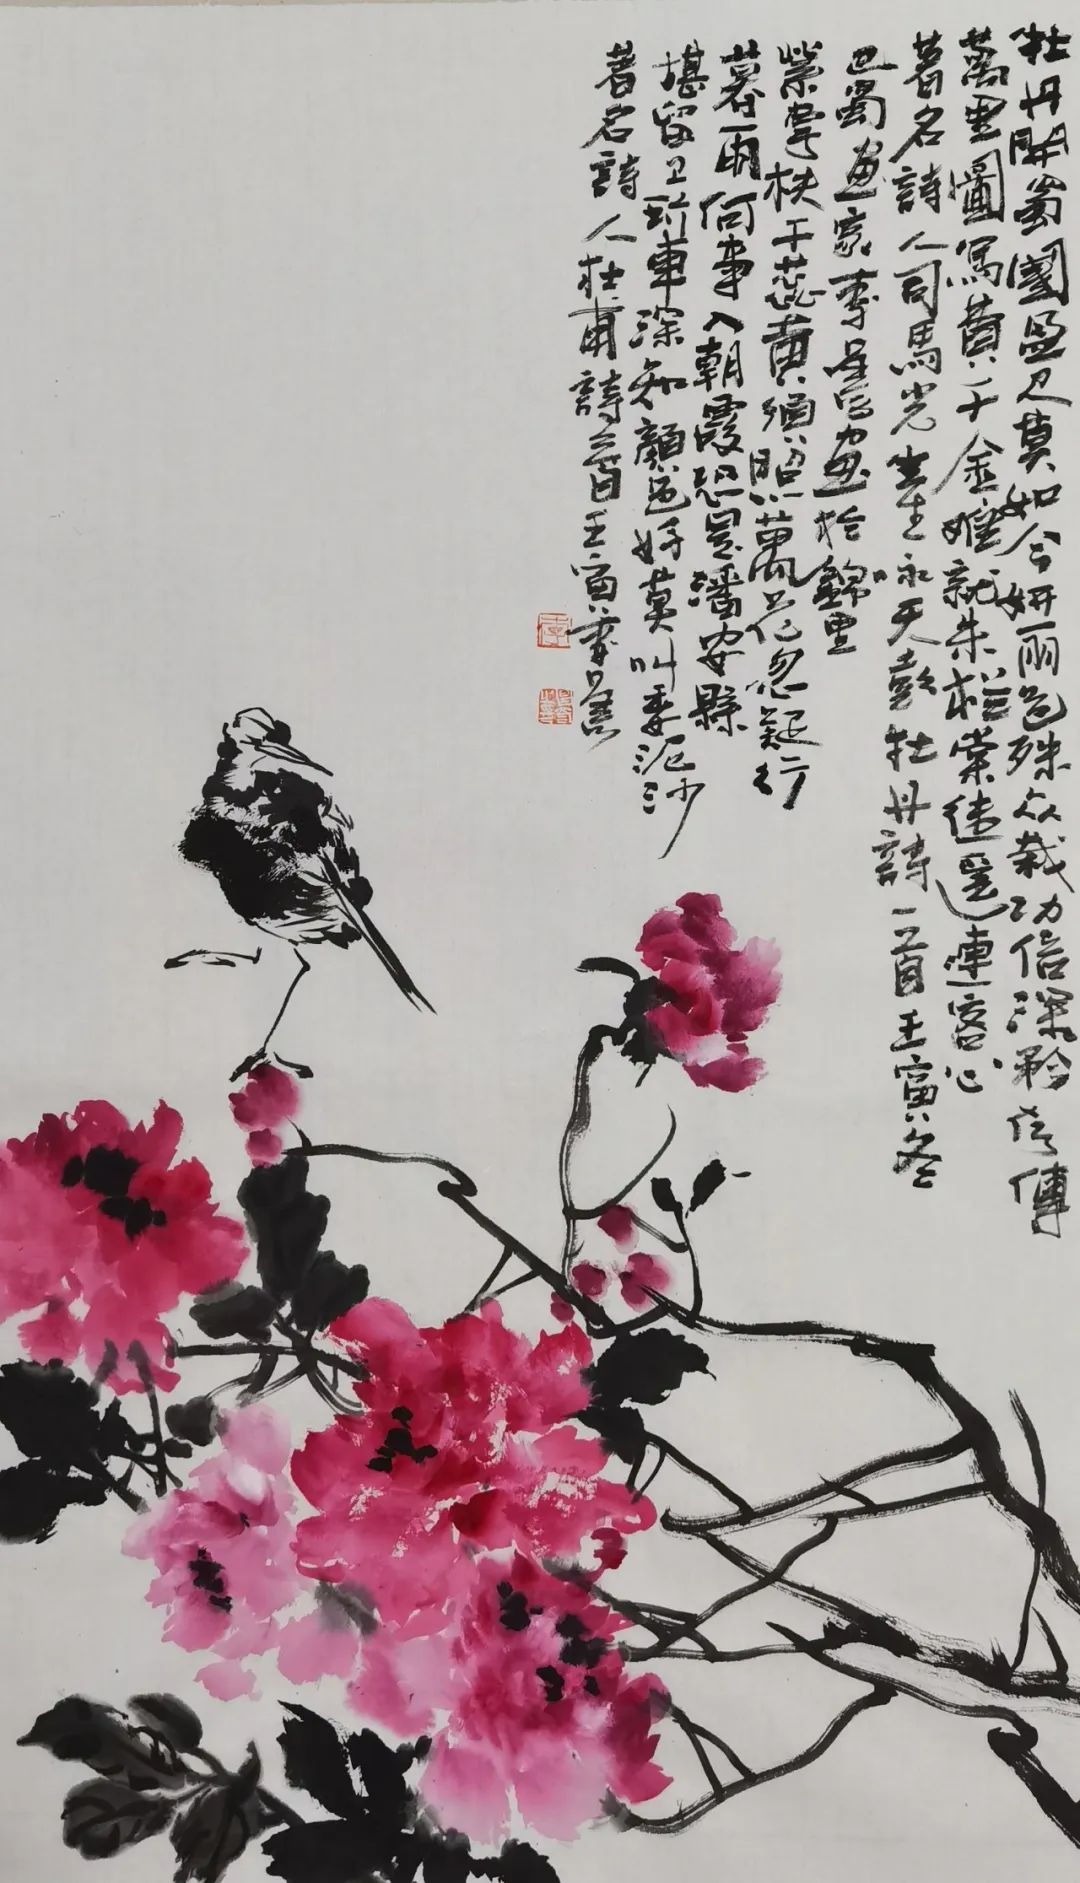 牡丹開蜀國盈尺莫如今妍丽色殊众栽功倍深矜夸傳
萬里圖寫費千金难就朱棺棠徳遥連客心
著名詩人司馬光坐生永天彭牡丹詩一首壬寅冬
巴蜀画家李昌画於錦里
紫萼扶千蕊黄须照萬花忽疑行
暮雨何事入朝霞恐是潘安縣
堪留卫玠車深知顏色好莫叫委泥沙
著名詩人杜甫詩一首壬寅李